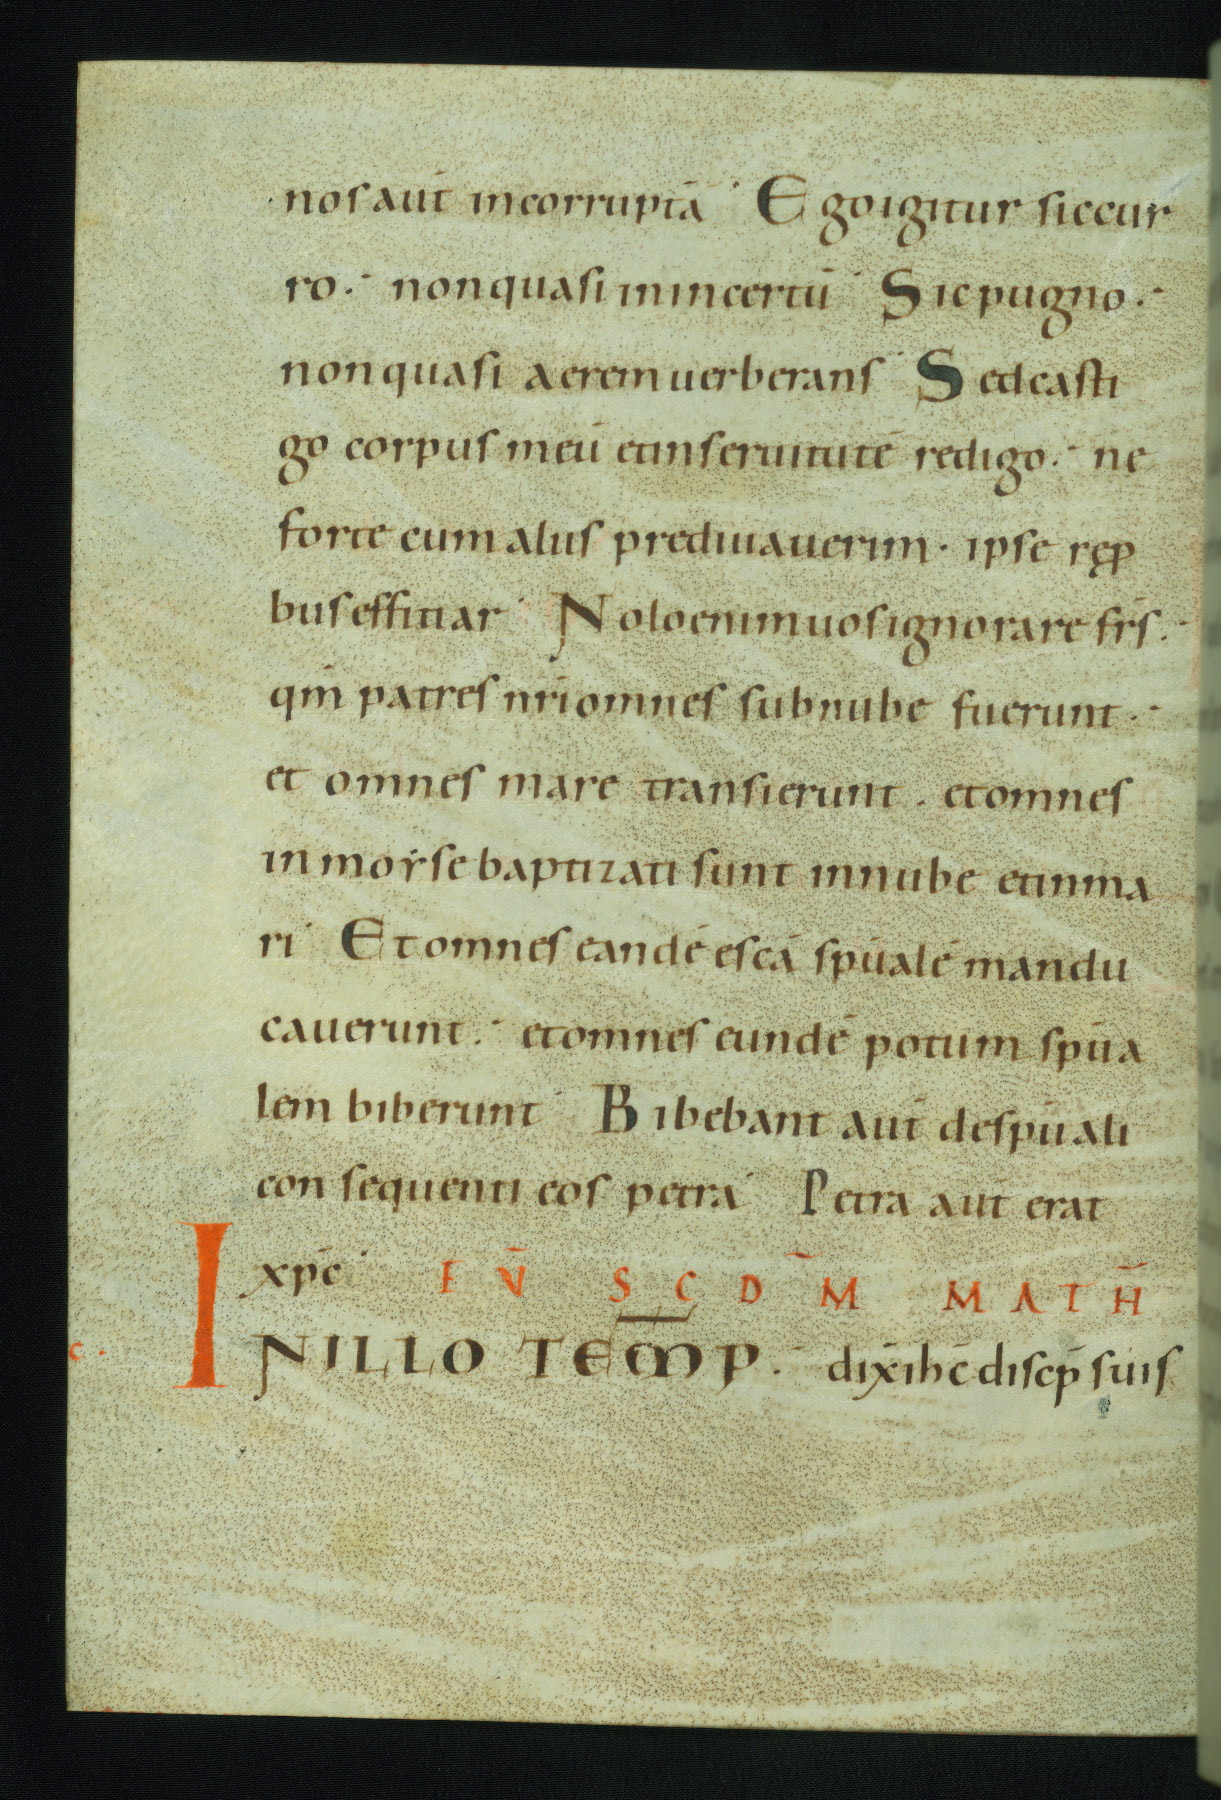 nos aut̄ incorruptā Ego igitur sic cur
ro. non quasi in incertū Sic pugno.
non quasi aerem uerberans Sed casti
go corpus meū et in seruitutē redigo. ne
forte cum aliis predicauerim. ipse rep̱
bus efficiar Nolo enim uos ignorare fr̄s.
qm̄ patres nr̄i omnes sub nube fuerunt.
et omnes mare transierunt. et omnes
in moẏse baptizati sunt in nube et in ma
ri Et omnes eandē escā sp̄ualē mandu
cauerunt. et omnes eundē potum sp̄ua
lem biberunt Bibebant aut̄ de sp̄uali
con sequenti eos petra Petra aut̄ erat
xp̄c EV̄ SC̄DM̄ MATH̄
c. IN ILLO TEM̄P. dix̄ ih̄c discip̄ suis